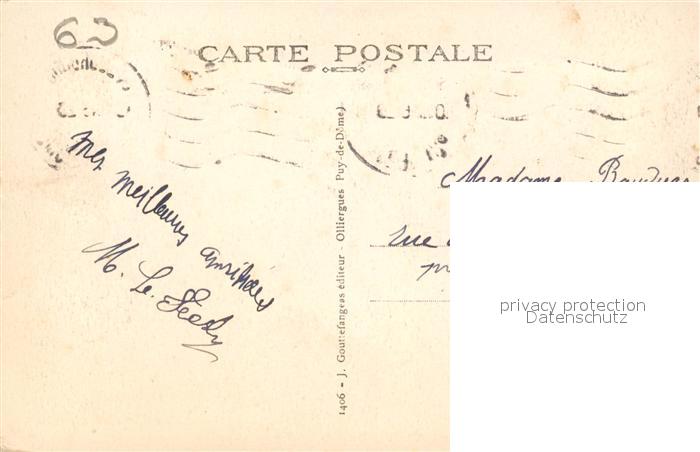 63
CARTE POSTALE
mes
meilleures amitiés
M. Le
1406 - J. Gouttefangeas éditeur - Olliergues (Puy-de-Dôme)
Madame
rue
privacy protection
Datenschutz